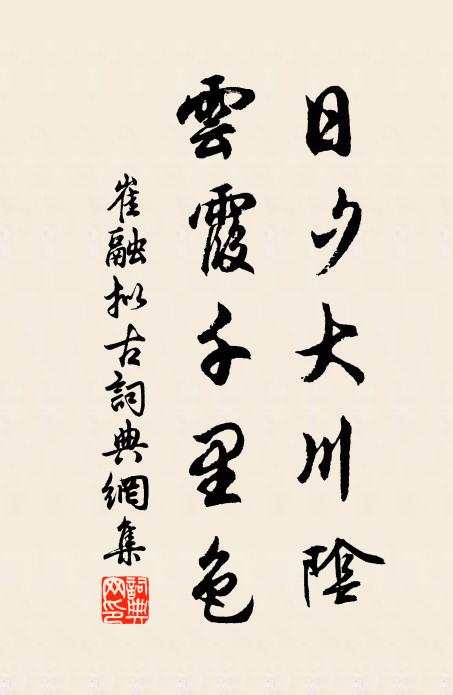 日夕大川陰
雲霞千里色
崔融擬古詞典網集
詞典網印